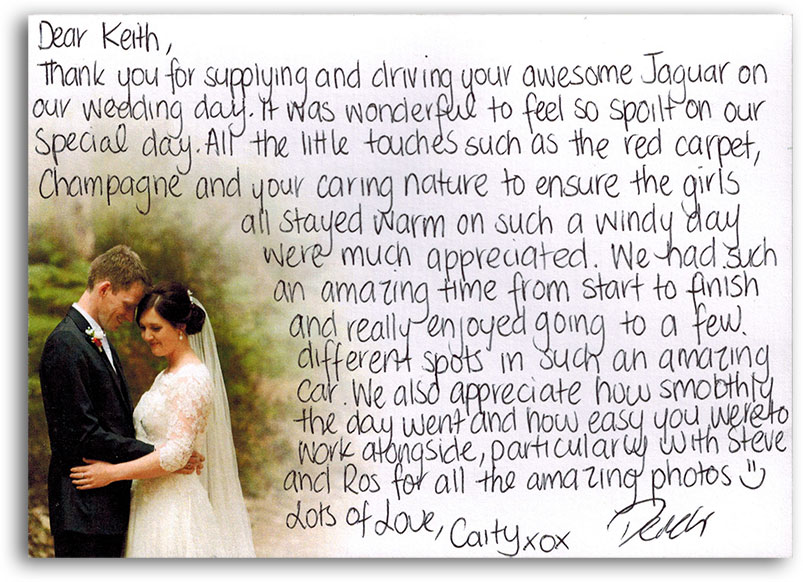 Dear Keith,
Thank you for supplying and driving your awesome Jaguar on
our wedding day. It was wonderful to feel so spoilt on our
special day. All the little touches such as the red carpet,
Champagne and your caring nature to ensure the girls
all stayed warm on such a windy day
were much appreciated. We had such
an amazing time from start to finish
and really enjoyed going to a few
different spots in such an amazing
car. We also appreciate how smoothly
the day went and how easy you were to
work alongside, particularly with Steve
and Ros for all the amazing photos
Lots of Love, Caity xox